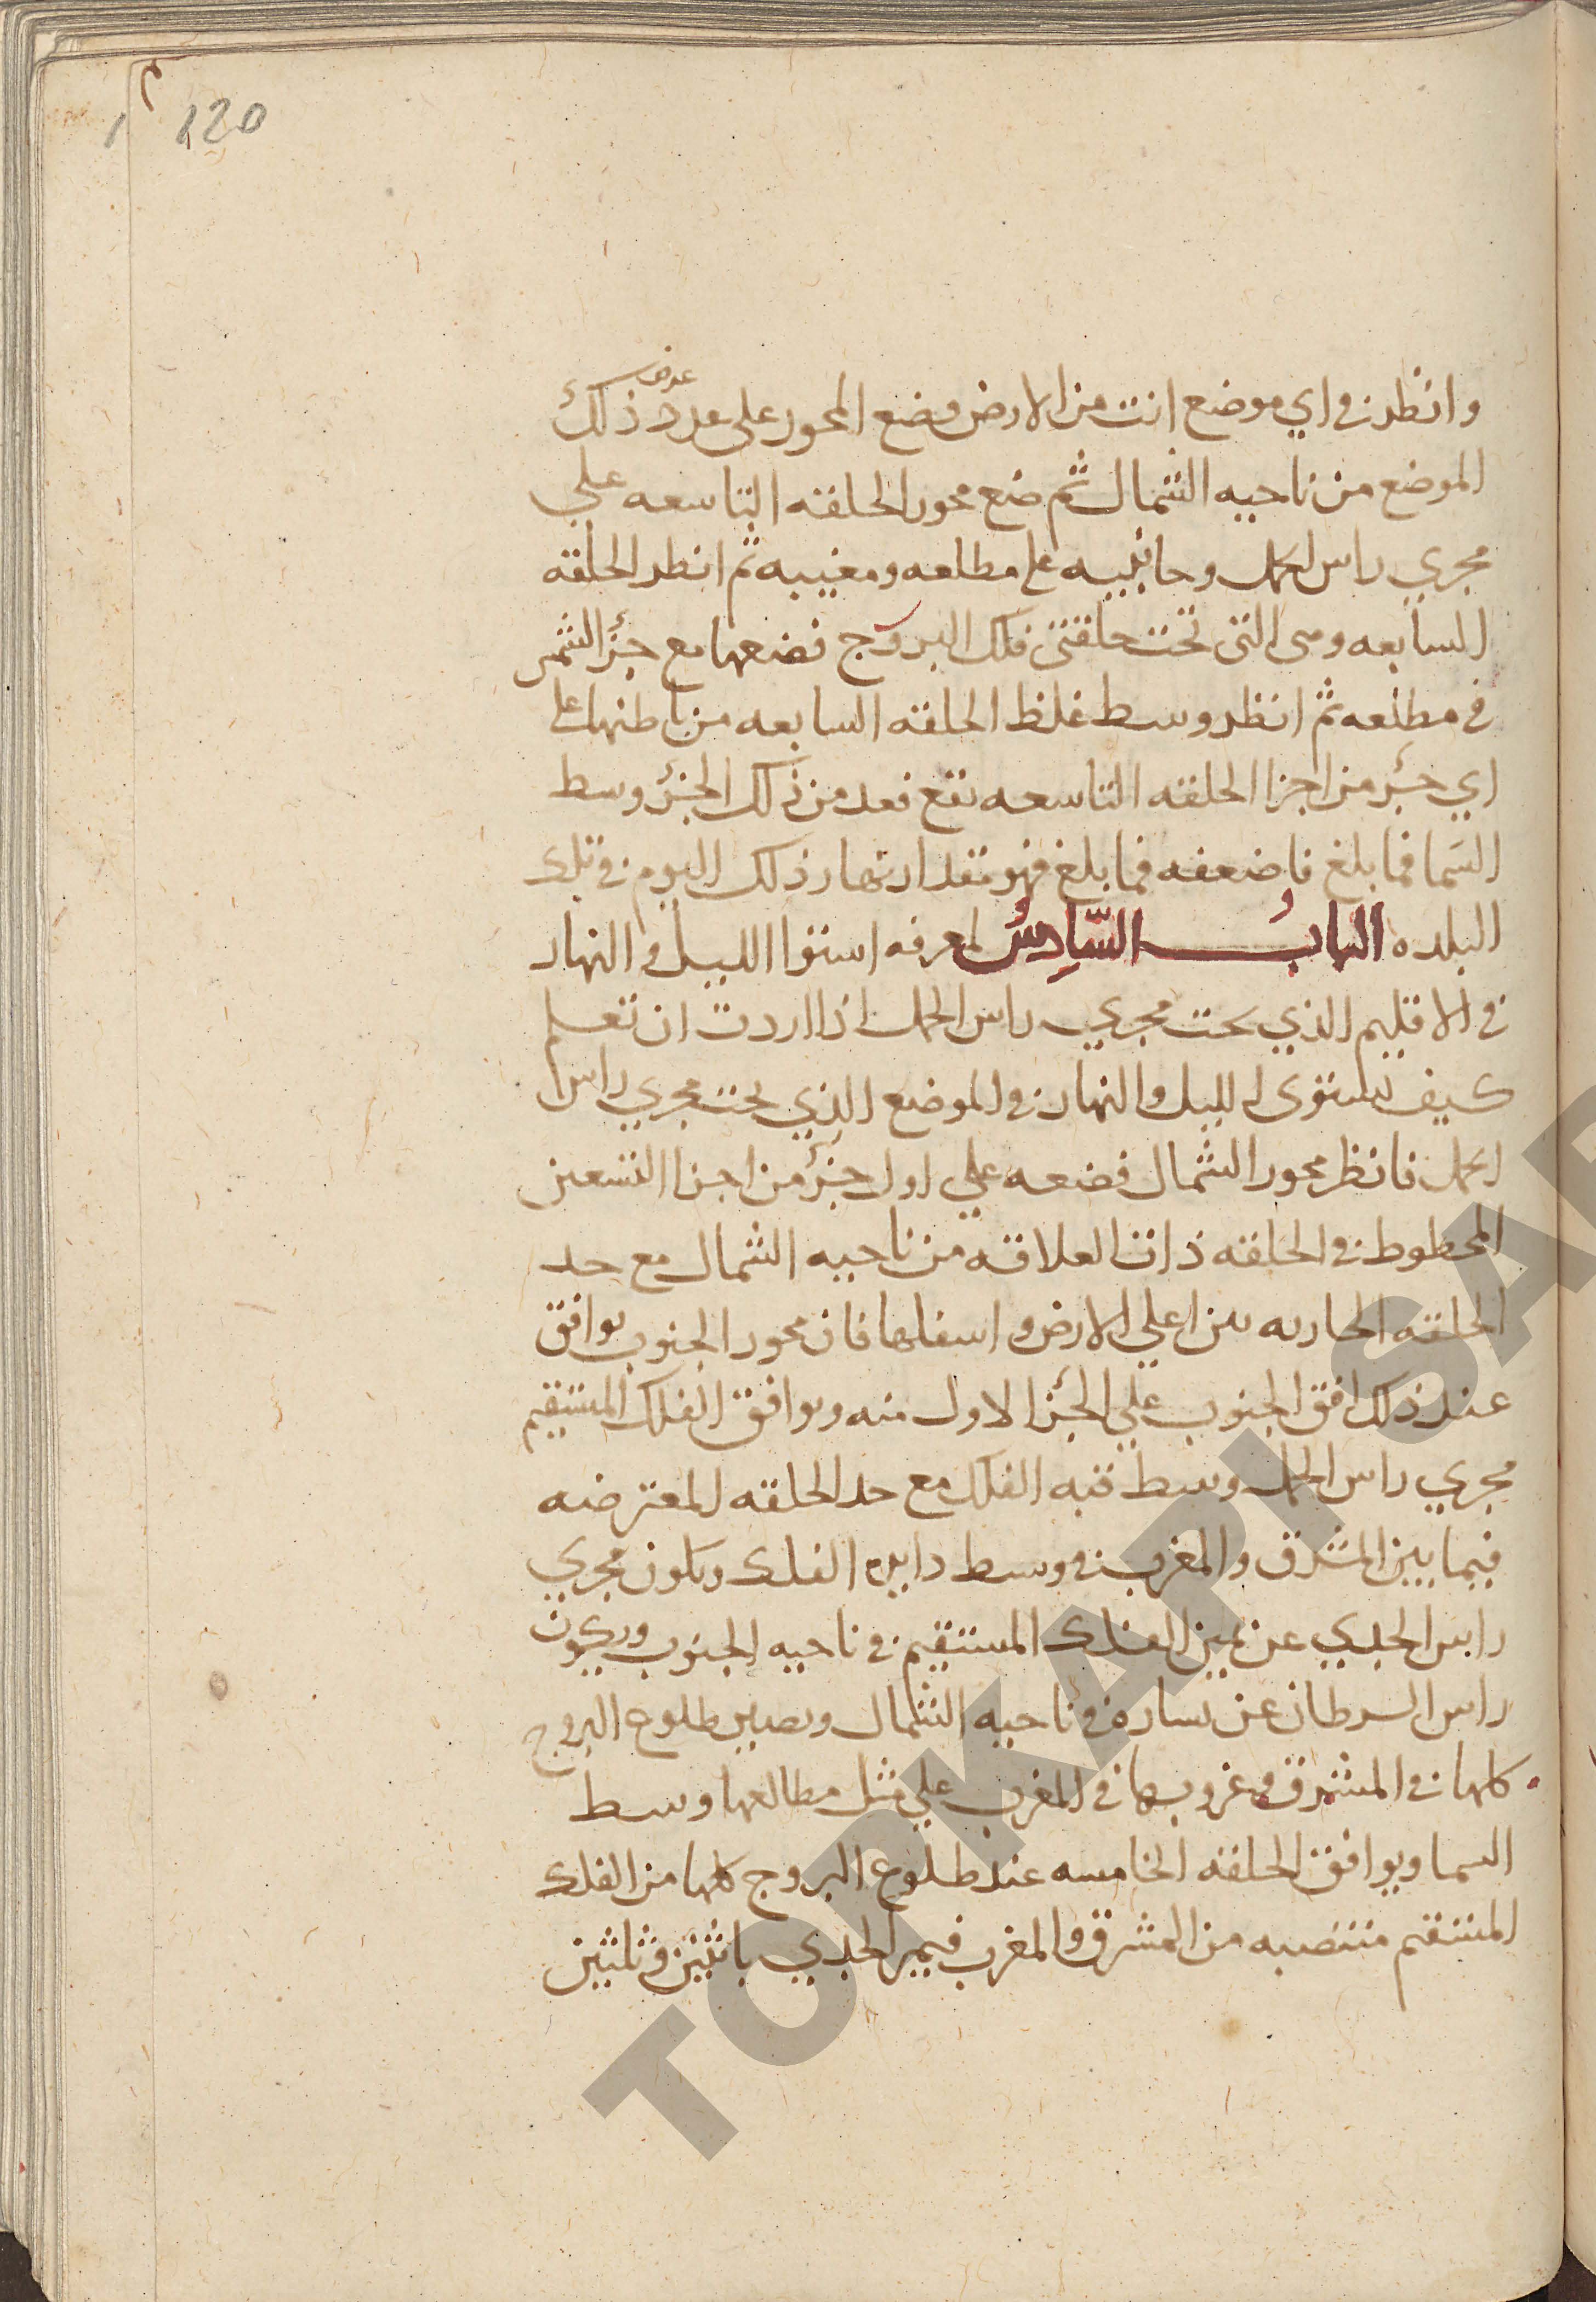 120
وانظر في اي موضع انت من الارض فضع المحور على عدد عرض ذلك
الموضع من ناحيه الشمال ثم ضع محور الحلقه التاسعه علي
مجري راس الحمل وجانبيه على مطلعه ومغيبه ثم انظر الحلقه
السابعه وهى التى تحت حلقتى فلك البروج فضعها مع جزؤ الشمس
في مطلعه ثم انظر وسط غلظ الحلقه السابعه من باطنها على
اي جزؤ من اجزا الحلقه التاسعه تقع فعد من ذلك الجزؤ وسط
السما فما بلغ فاضعفه فما بلغ فهو مقدار نهار ذلك اليوم في تلك
البلده الباب السّادِسُ لمعرفه استوا الليل والنهار
في الاقليم الذي تحت مجري راس الحمل اذا اردت ان تعلم
كيف يستوى الليل والنهار في الموضع الذي تحت مجري راس
الحمل فانظر محور الشمال فضعه علي اول جزؤ من اجزا التسعين
المخطوط في الحلقه ذات العلاقه من ناحيه الشمال مع حد
الحلقه الحاربه بين اعلي الارض واسفلها فان محور الجنوب يوافق
عند ذلك افق الجنوب علي الجزؤ الاول منه ويوافق الفلك المستقيم
مجري راس الحمل وسط قبه الفلك مع حد الحلقه المعترضه
فيما بين المشرق والمغرب في وسط دايره الفلك ويكون مجري
راس الجدي عن يمين الفلك المستقيم في ناحيه الجنوب ويكون
راس السرطان عن يساره في ناحيه الشمال ويصير طلوع البروج
كلها في المشرق وغروبها في المغرب علي مثل مطالعها وسط
السما ويوافق الحلقه الخامسه عند طلوع البروج كلها من الفلك
المستقيم منتصبه من المشرق والمغرب فيمر الجدي باثنين وثلثين
TOPKAPI SAR